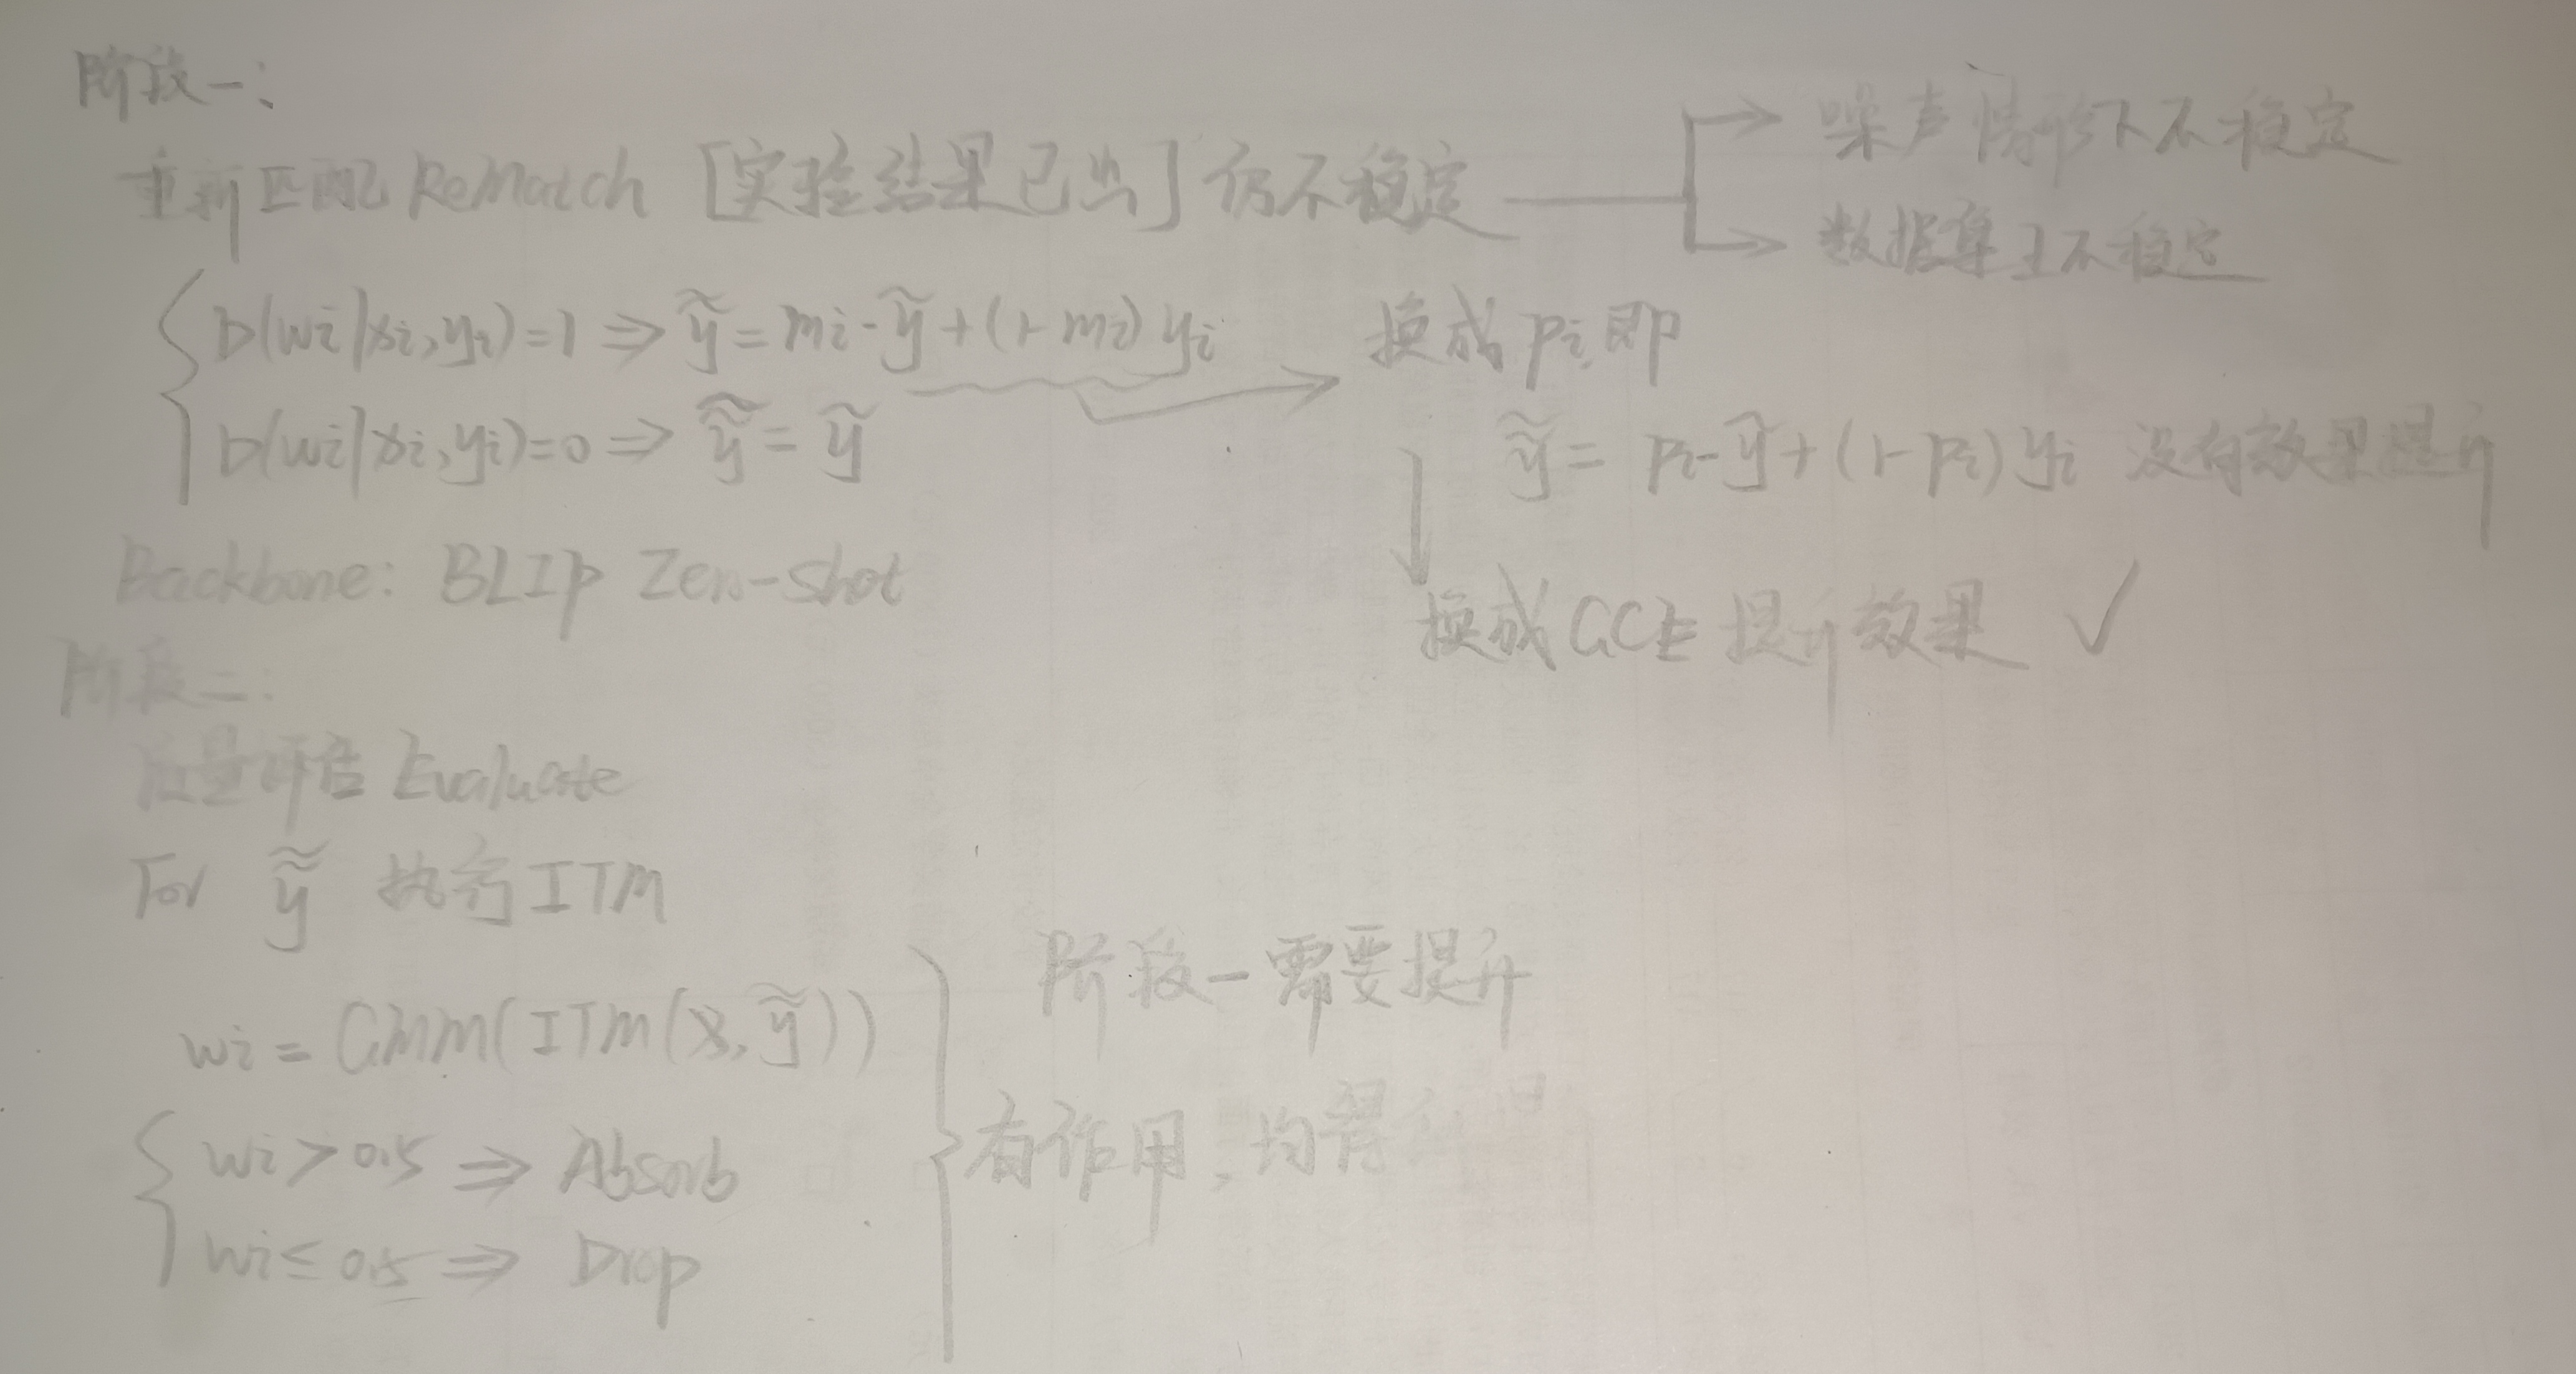 阶段一:
重新匹配 ReMatch [实验结果已出] 仍不稳定
噪声情形下不稳定
数据集上不稳定
D(wi|xi,yi)=1 ⇒ ỹ = mi·ỹ + (1-mi) yi
换成 pi, 即
D(wi|xi,yi)=0 ⇒ ỹ̃ = ỹ
ỹ = pi·ỹ + (1-pi) yi 没有效果提升
换成 GCE 提升效果 ✓
Backbone: BLIP Zero-shot
阶段二:
质量评估 Evaluate
For ỹ̃ 执行 ITM
wi = GMM(ITM(x, ỹ̃))
wi > 0.5 ⇒ Absorb
wi ≤ 0.5 ⇒ Drop
阶段一需要提升
有作用, 均